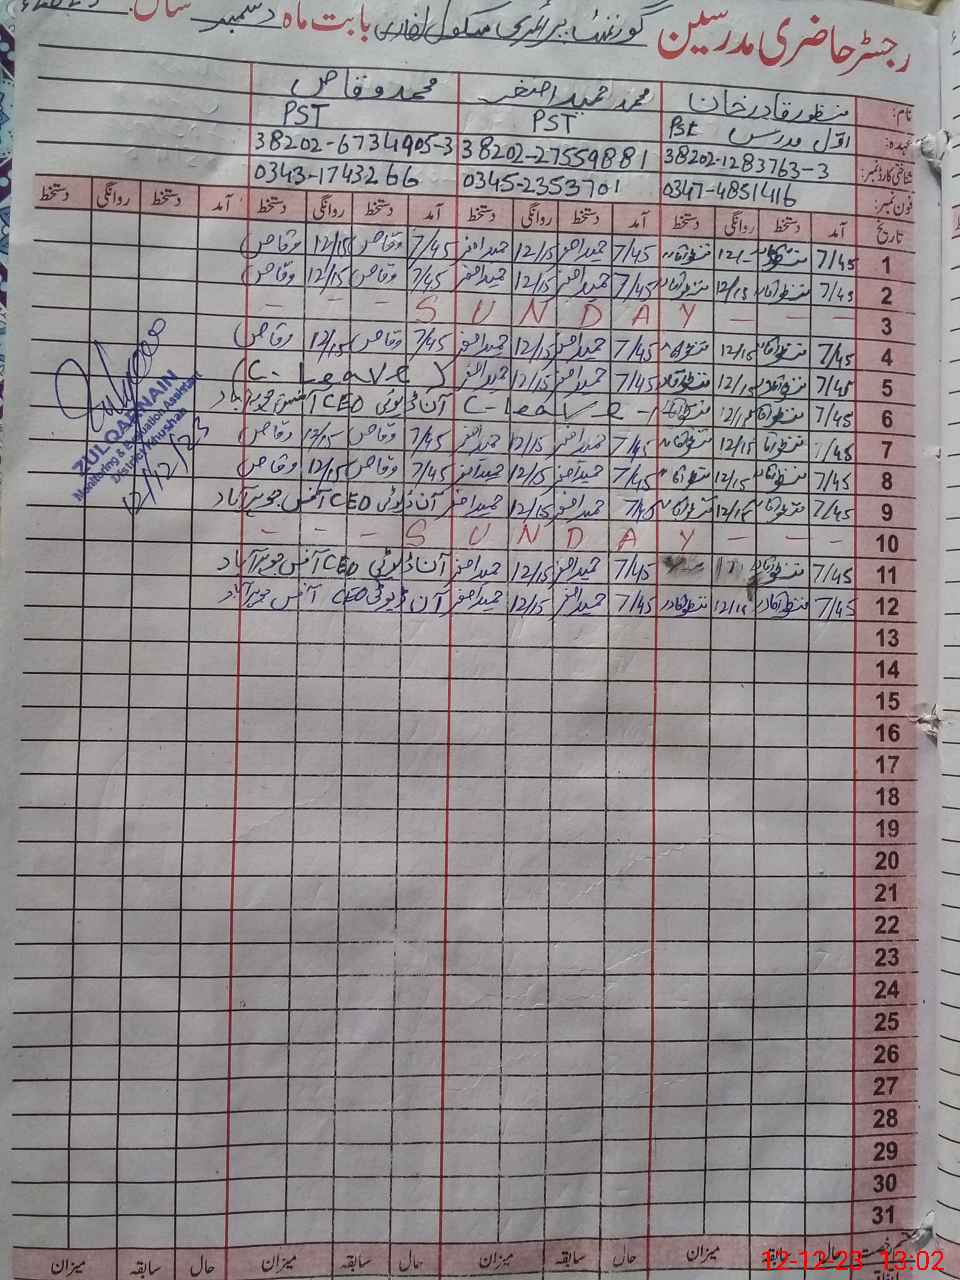 رجسٹر حاضری مدرسین گورنمنٹ پرائمری سکول بابت ماہ دسمبر سال
نام: منظور قادر خان محمد حمید اصغر محمد وقاص
عہدہ: اول مدرس PST PST PST
شناختی کارڈ نمبر: 38202-1283763-3 38202-27559881 38202-6734905-3
فون نمبر: 0347-4851416 0345-2353701 0343-1743266
تاریخ آمد دستخط روانگی دستخط آمد دستخط روانگی دستخط آمد دستخط روانگی دستخط آمد دستخط روانگی دستخط
1 7/45 7/45 حمید اصغر 12/15 حمید اصغر 7/45 وقاص 12/15 وقاص
2 7/45 12/15 7/45 حمید اصغر 12/15 حمید اصغر 7/45 وقاص 12/15 وقاص
3 - - - S U N D A Y - - -
4 7/45 12/15 7/45 حمید اصغر 12/15 حمید اصغر 7/45 وقاص 12/15 وقاص
5 7/45 12/15 7/45 حمید اصغر 12/15 حمید اصغر (C-Leave)
6 7/45 12/15 C-Leave- آن ڈیوٹی CEO آفس جوہرآباد
7 7/45 12/15 7/45 حمید اصغر 12/15 حمید اصغر 7/45 وقاص 12/15 وقاص
8 7/45 12/15 7/45 حمید اصغر 12/15 حمید اصغر 7/45 وقاص 12/15 وقاص
9 7/45 12/15 7/45 حمید اصغر 12/15 حمید اصغر آن ڈیوٹی CEO آفس جوہرآباد
10 - - - S U N D A Y - - -
11 7/45 7/45 حمید اصغر 12/15 حمید اصغر آن ڈیوٹی CEO آفس جوہرآباد
12 7/45 12/15 7/45 حمید اصغر 12/15 حمید اصغر آن ڈیوٹی CEO آفس جوہرآباد
13
14
15
16
17
18
19
20
21
22
23
24
25
26
27
28
29
30
31
ZULQARNAIN
Monitoring & Evaluation Assistant
District Khushab
12/12/23
حال سابقہ میزان حال سابقہ میزان حال سابقہ میزان حال سابقہ میزان
12-12-23 13:02